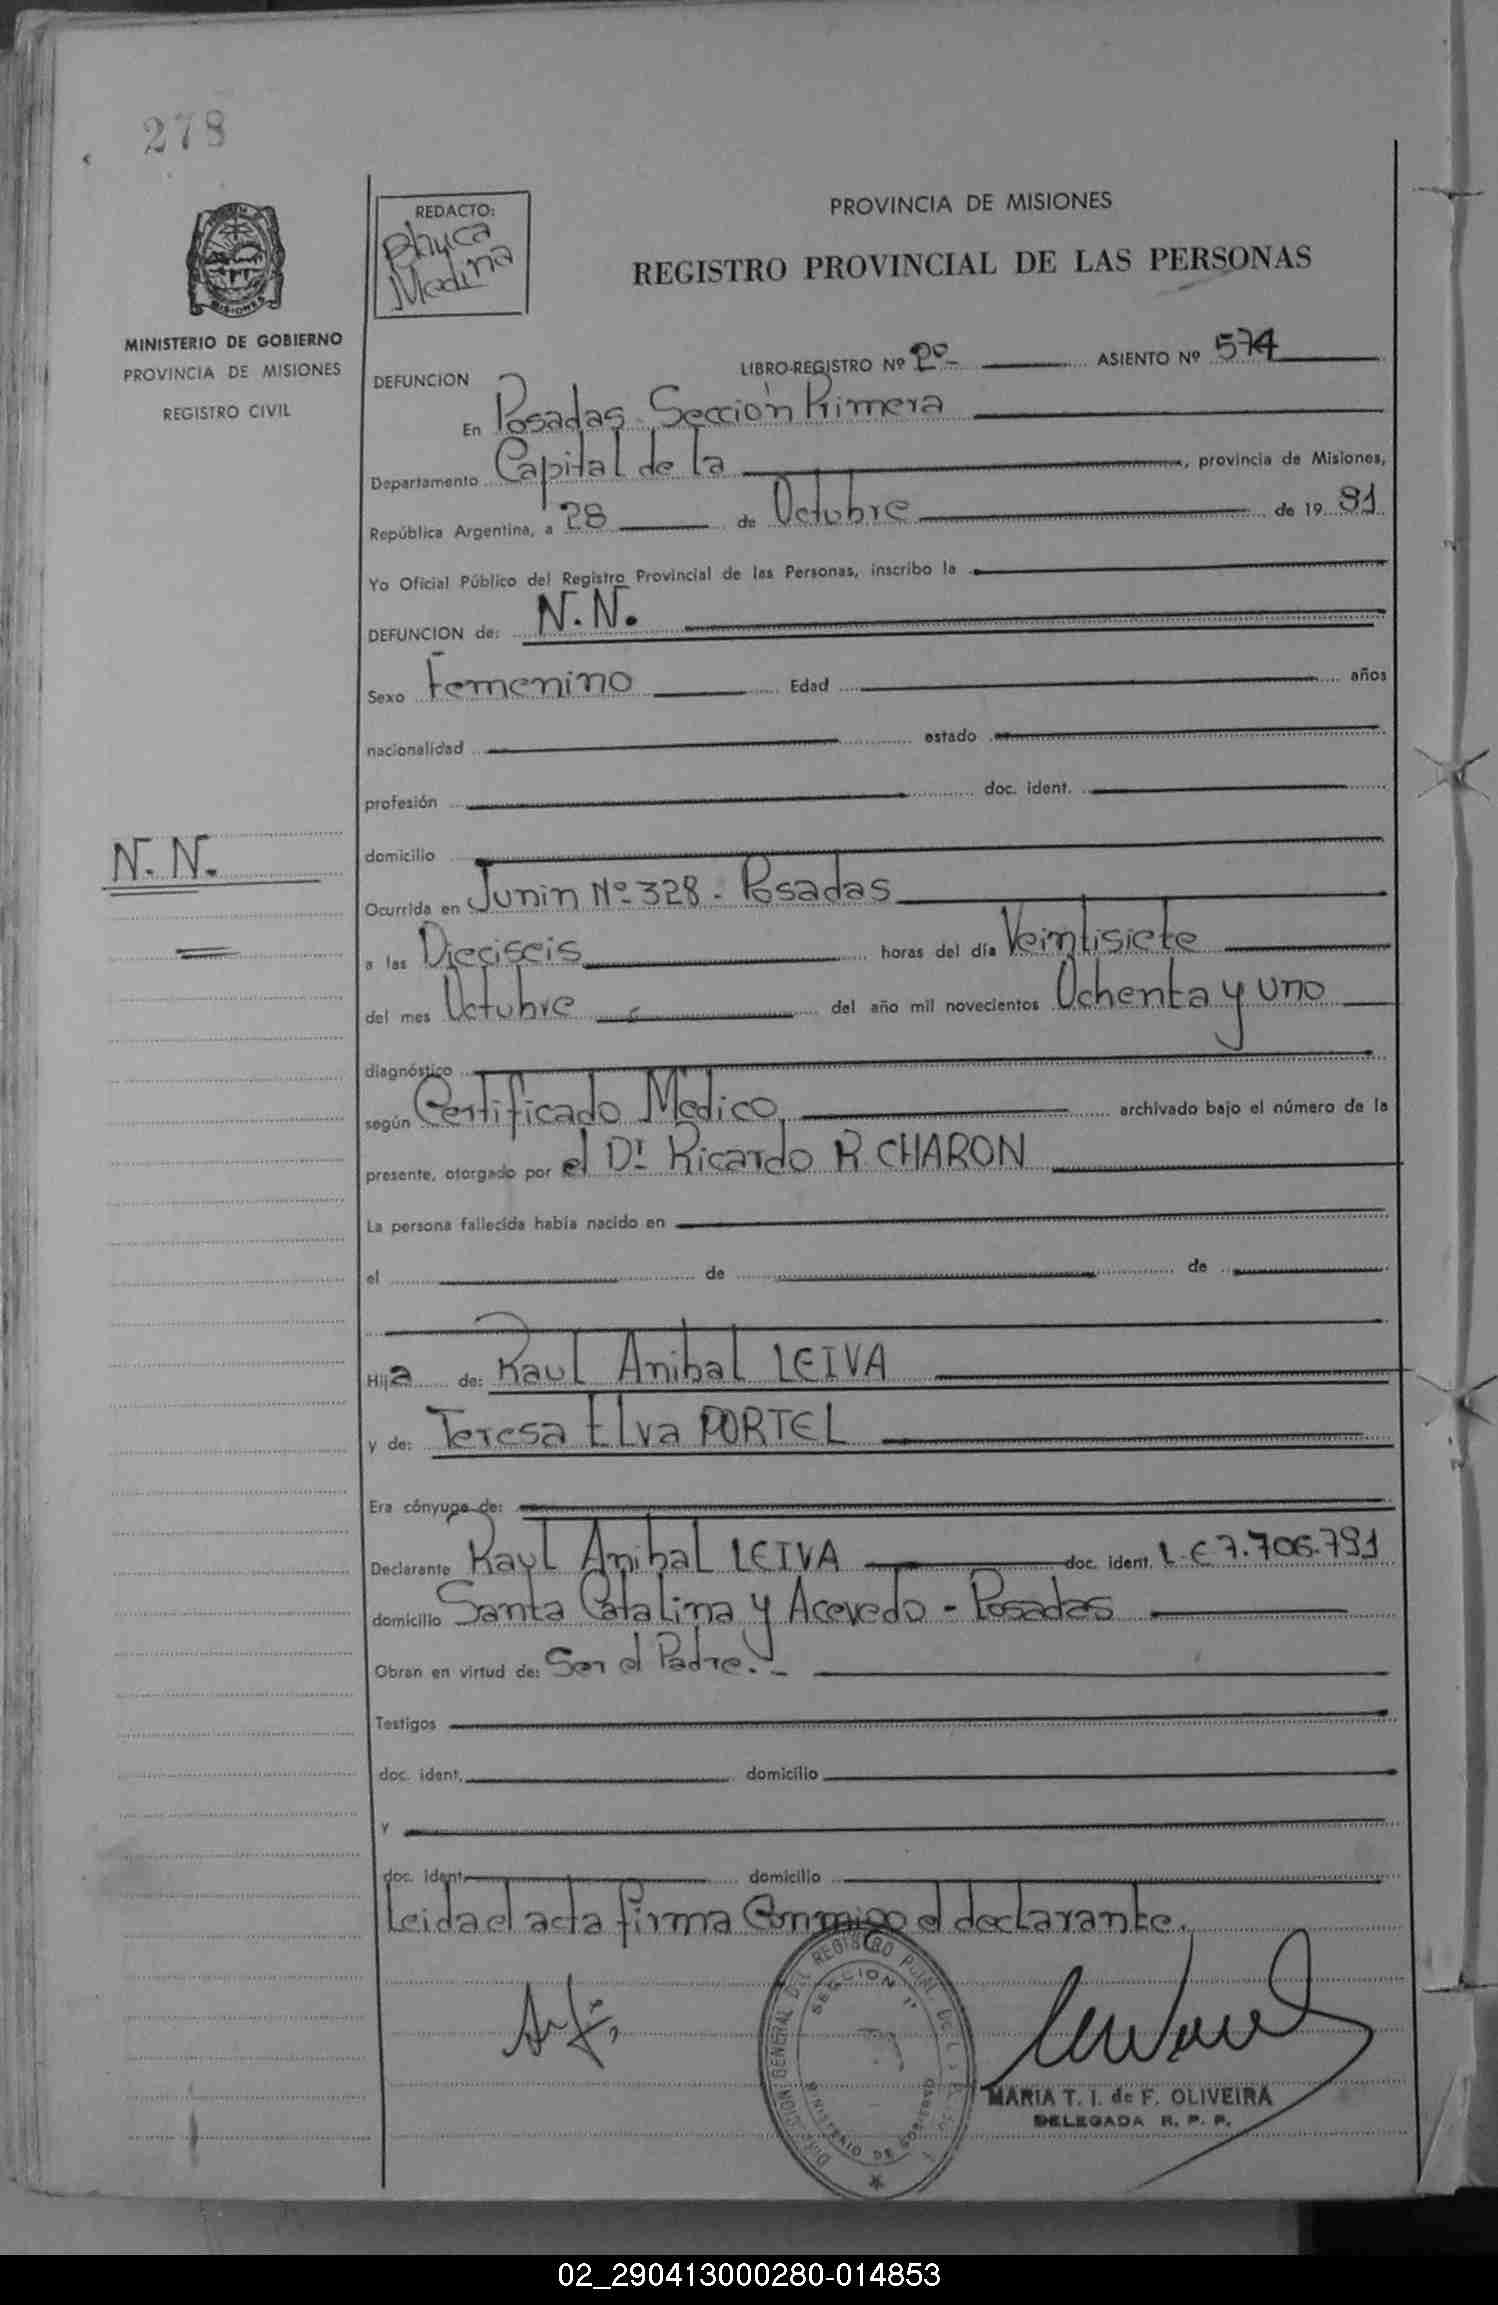 278
MINISTERIO DE GOBIERNO
PROVINCIA DE MISIONES
REGISTRO CIVIL
REDACTO:
Medina
PROVINCIA DE MISIONES
REGISTRO PROVINCIAL DE LAS PERSONAS
DEFUNCION LIBRO-REGISTRO Nº 2º ASIENTO Nº 574
En Posadas - Sección Primera
Departamento Capital de la , provincia de Misiones,
República Argentina, a 28 de Octubre de 19 81
Yo Oficial Público del Registro Provincial de las Personas, inscribo la
DEFUNCION de: N.N.
Sexo Femenino Edad años
nacionalidad estado
profesión doc. ident.
N.N.
domicilio
Ocurrida en Junin Nº 328 - Posadas
a las Dieciseis horas del día Veintisiete
del mes Octubre del año mil novecientos Ochenta y uno
diagnóstico
según Certificado Médico archivado bajo el número de la
presente, otorgado por el Dr Ricardo R CHARON
La persona fallecida había nacido en
el de de
Hija de: Raul Anibal LEIVA
y de: Teresa Elva PORTEL
Era cónyuge de:
Declarante Raul Anibal LEIVA doc. ident. L.E 7.706.791
domicilio Santa Catalina y Acevedo - Posadas
Obran en virtud de: Ser el Padre.-
Testigos
doc. ident. domicilio
y
doc. ident. domicilio
Leida el acta firma Conmigo el declarante.
DIRECCION GENERAL DEL REGISTRO
SECCION 1ª
MINISTERIO DE GOBIERNO
MARIA T. I. de F. OLIVEIRA
DELEGADA R. P. P.
02_290413000280-014853